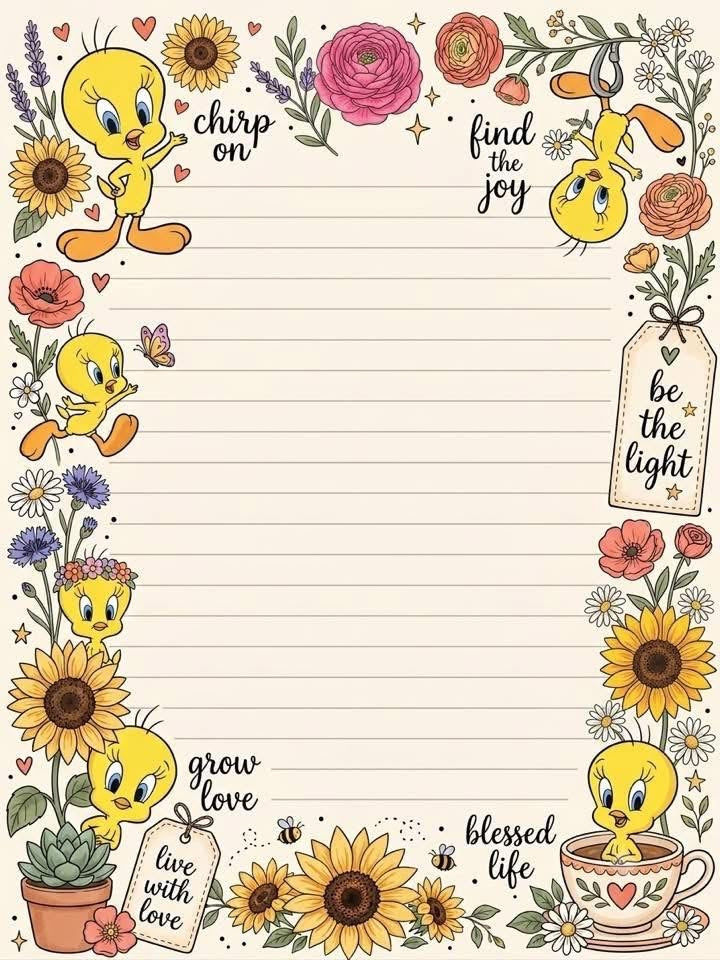 chirp
on
find
the
joy
be
the
light
grow
love
live
with
love
blessed
life